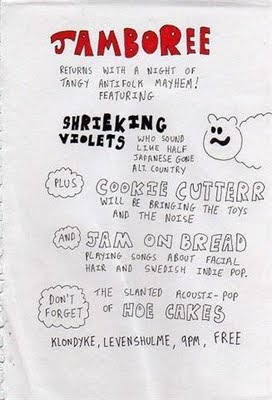 JAMBOREE
RETURNS WITH A NIGHT OF
TANGY ANTIFOLK MAYHEM!
FEATURING
SHRIEKING
VIOLETS
WHO SOUND
LIKE HALF
JAPANESE GONE
ALT. COUNTRY
PLUS
COOKIE CUTTERR
WILL BE BRINGING THE TOYS
AND THE NOISE
AND
JAM ON BREAD
PLAYING SONGS ABOUT FACIAL
HAIR AND SWEDISH INDIE POP.
DON'T
FORGET
THE SLANTED ACOUSTI-POP
OF HOE CAKES
KLONDYKE, LEVENSHULME, 9PM, FREE